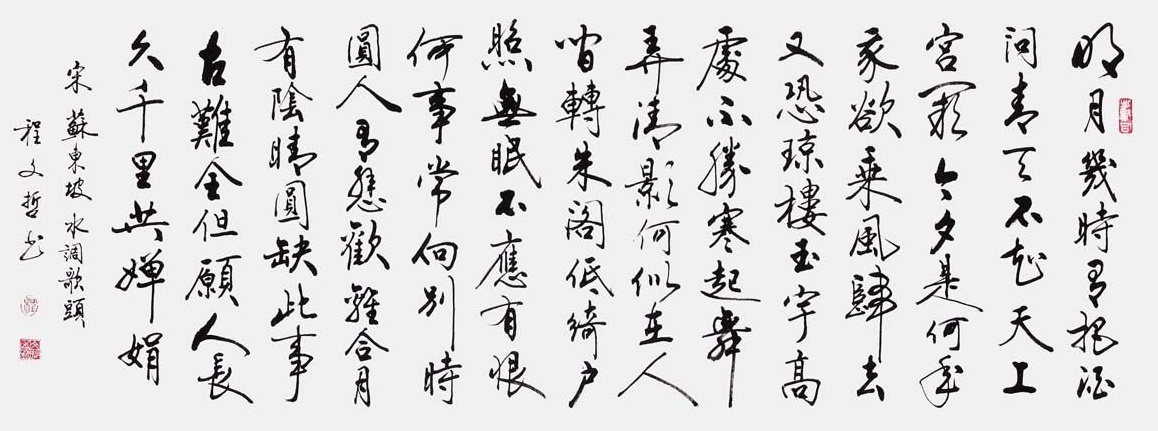 明月幾時有把酒
問青天不知天上
宮闕今夕是何年
我欲乘風歸去
又恐琼樓玉宇高
處不勝寒起舞
弄清影何似在人
間轉朱閣低綺戶
照無眠不應有恨
何事常向別時
圓人有悲歡離合月
有陰晴圓缺此事
古難全但願人長
久千里共嬋娟
宋蘇東坡水調歌頭
程文哲書